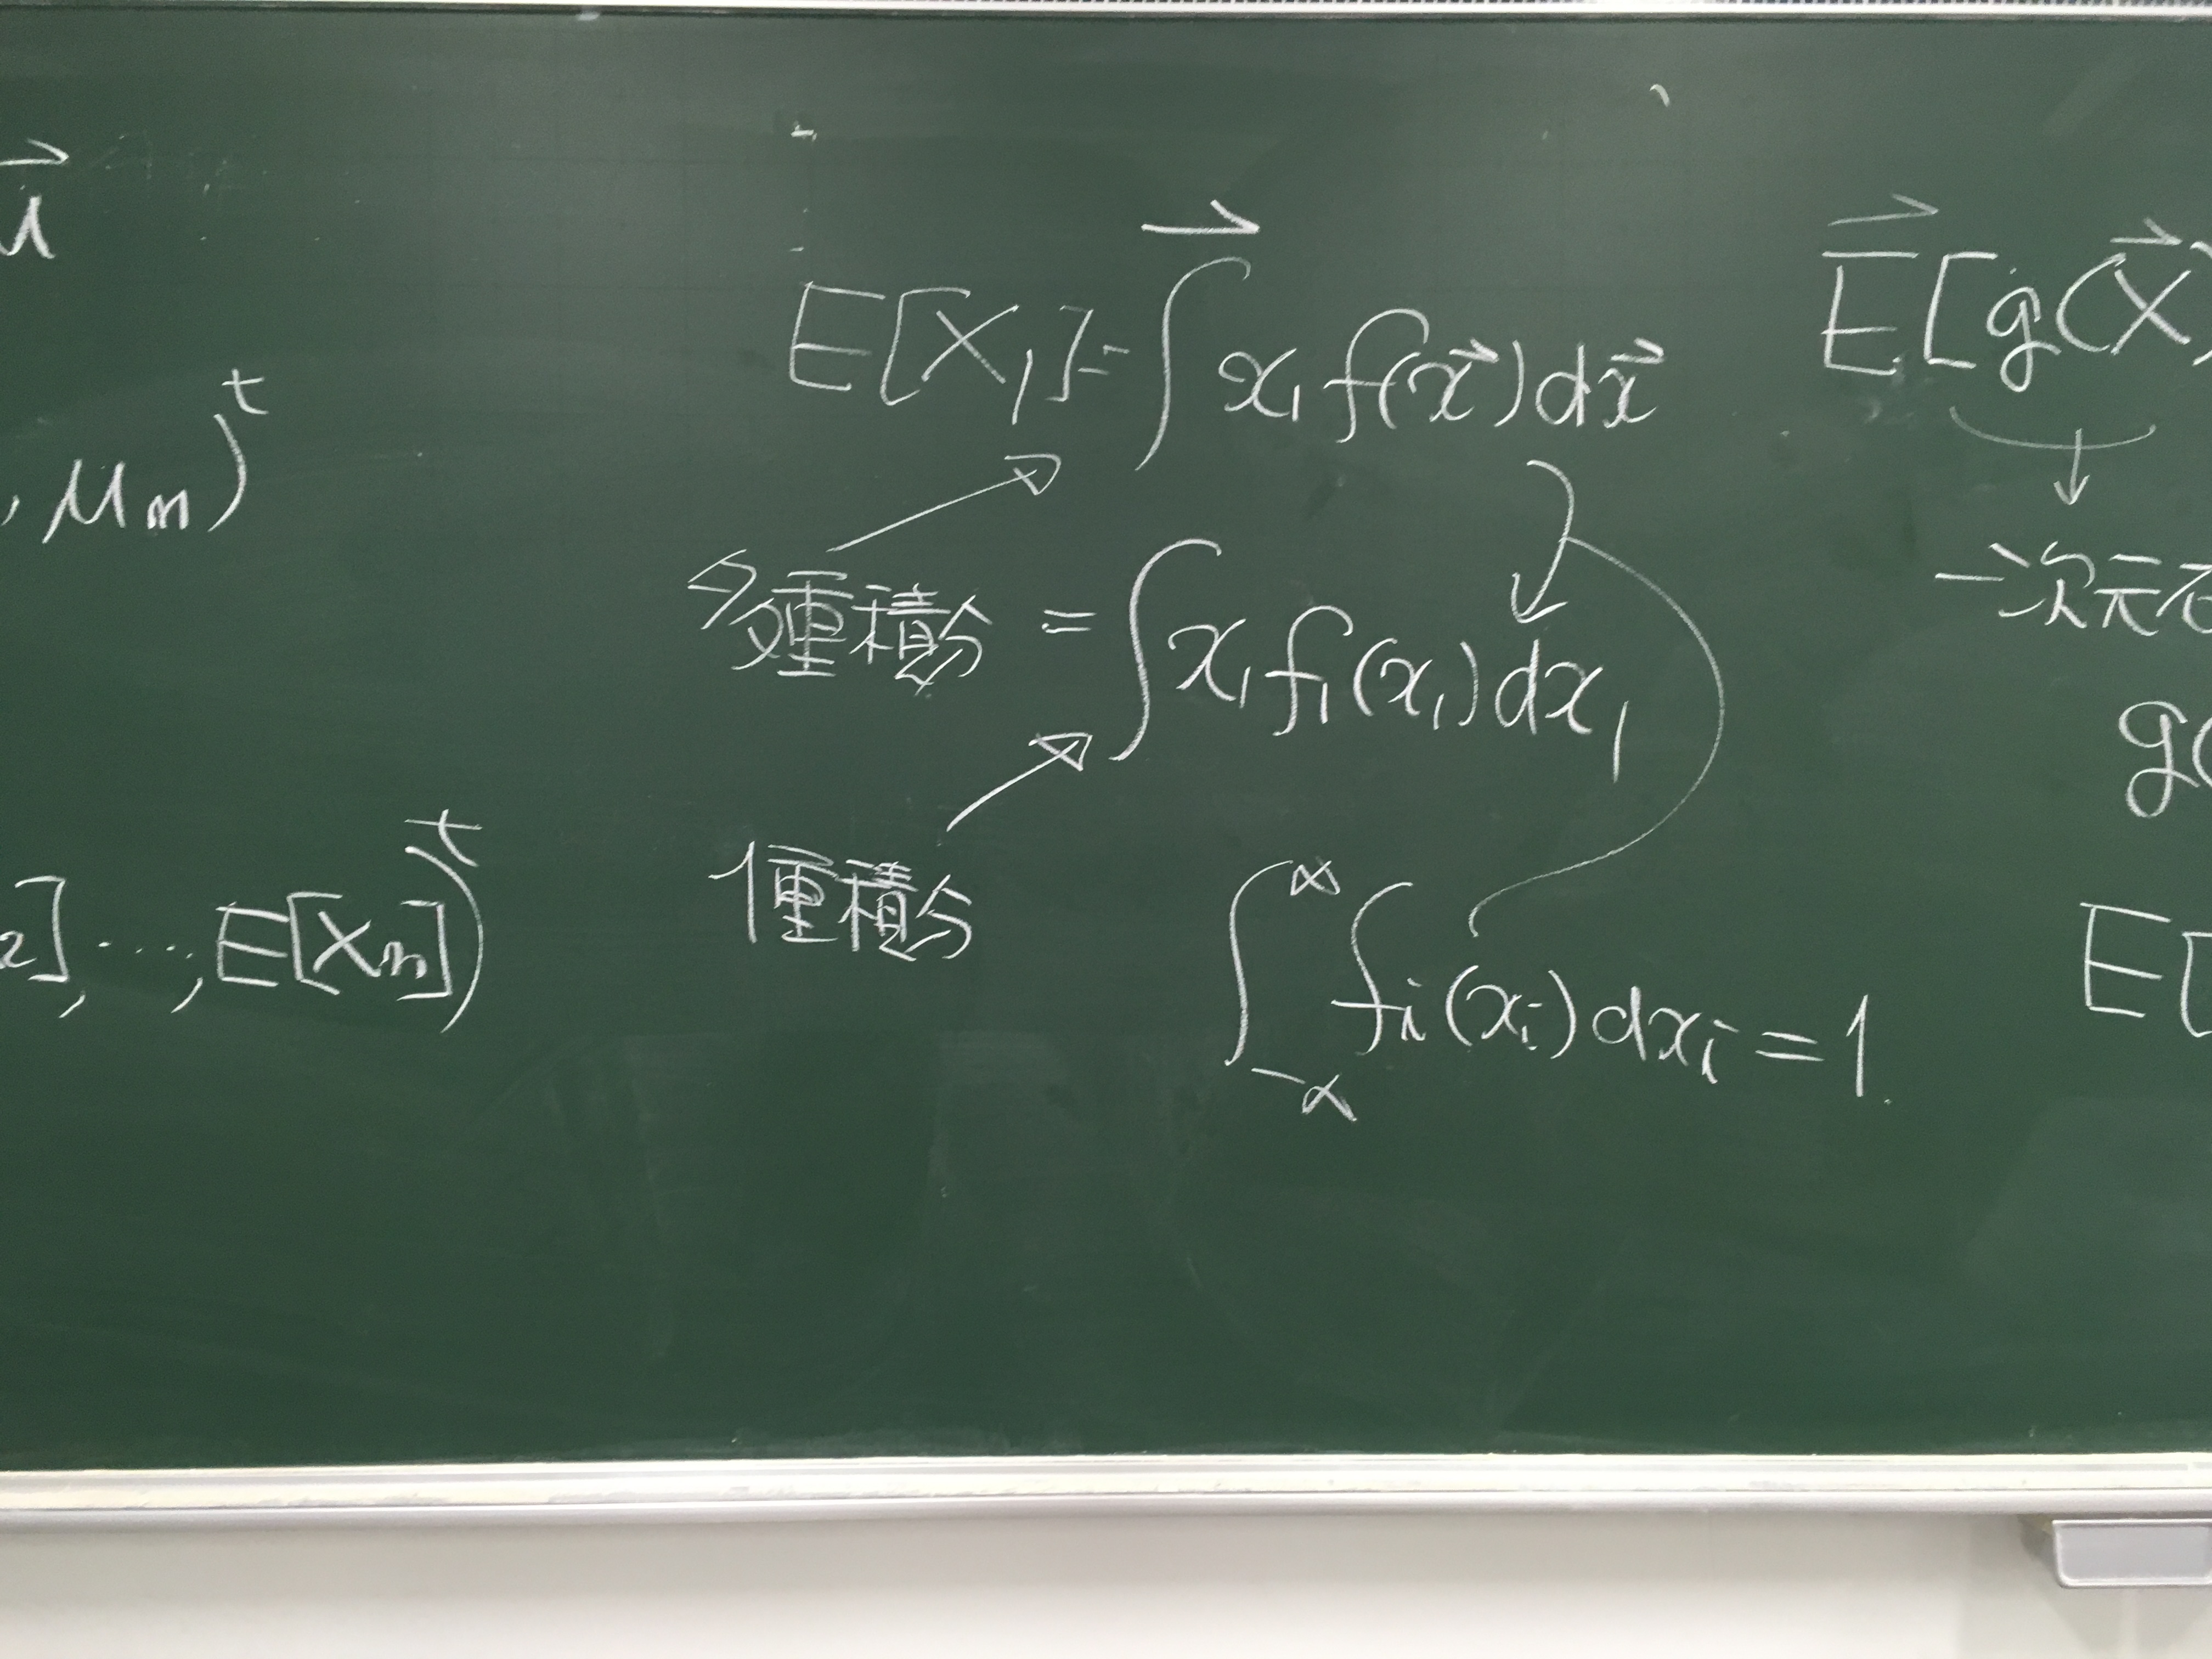 u⃗
, μₘ)ᵗ
₂], ⋯, E[Xₙ])ᵗ
E[X₁] = ∫⃗ x₁ f(x⃗) dx⃗
多重積分
= ∫ x₁ f₁(x₁) dx₁
1重積分
∫_{-∞}^{∞} fᵢ(xᵢ) dxᵢ = 1.
E⃗[g(X⃗)
一次元
g(
E[